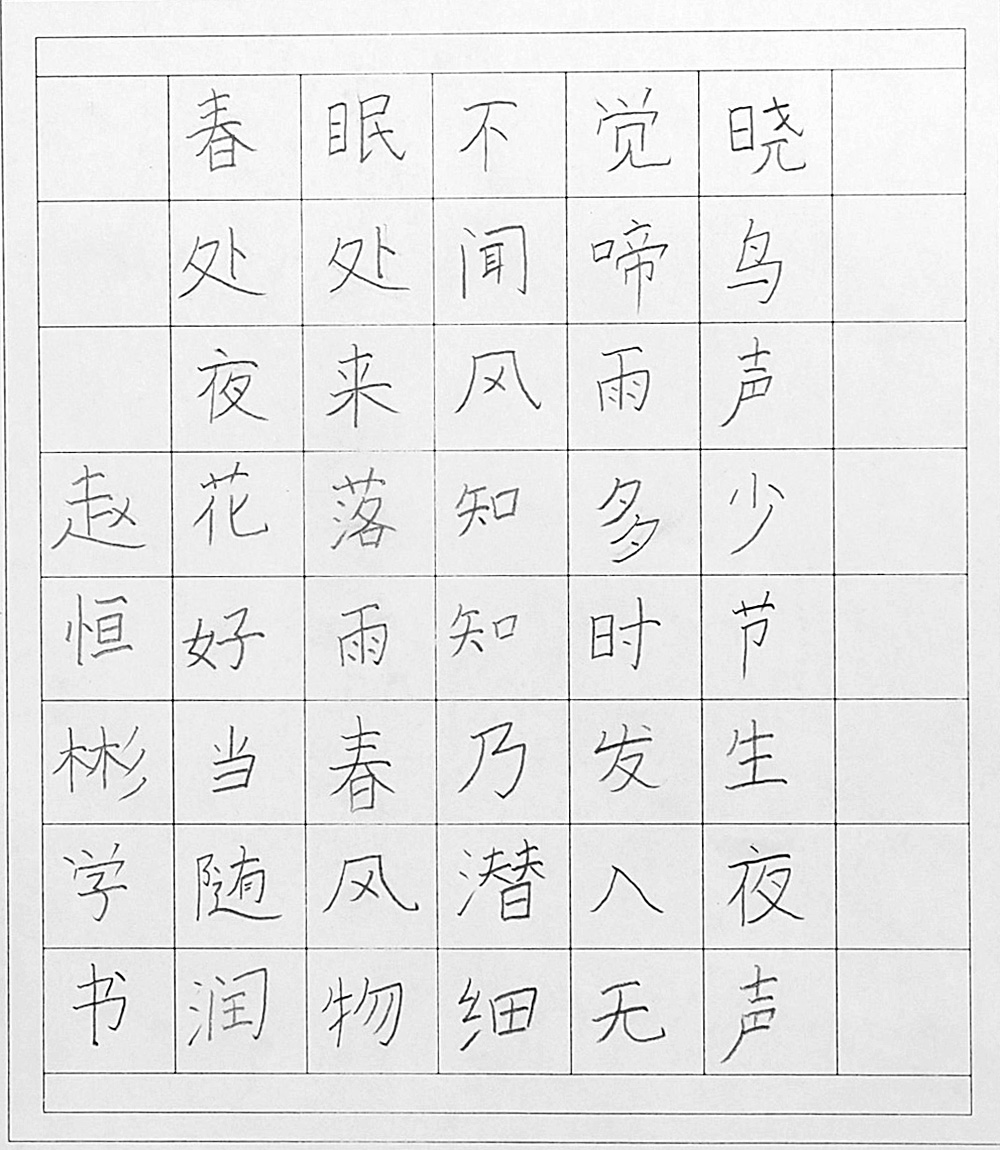 春眠不觉晓
处处闻啼鸟
夜来风雨声
花落知多少
好雨知时节
当春乃发生
随风潜入夜
润物细无声
赵恒彬学书